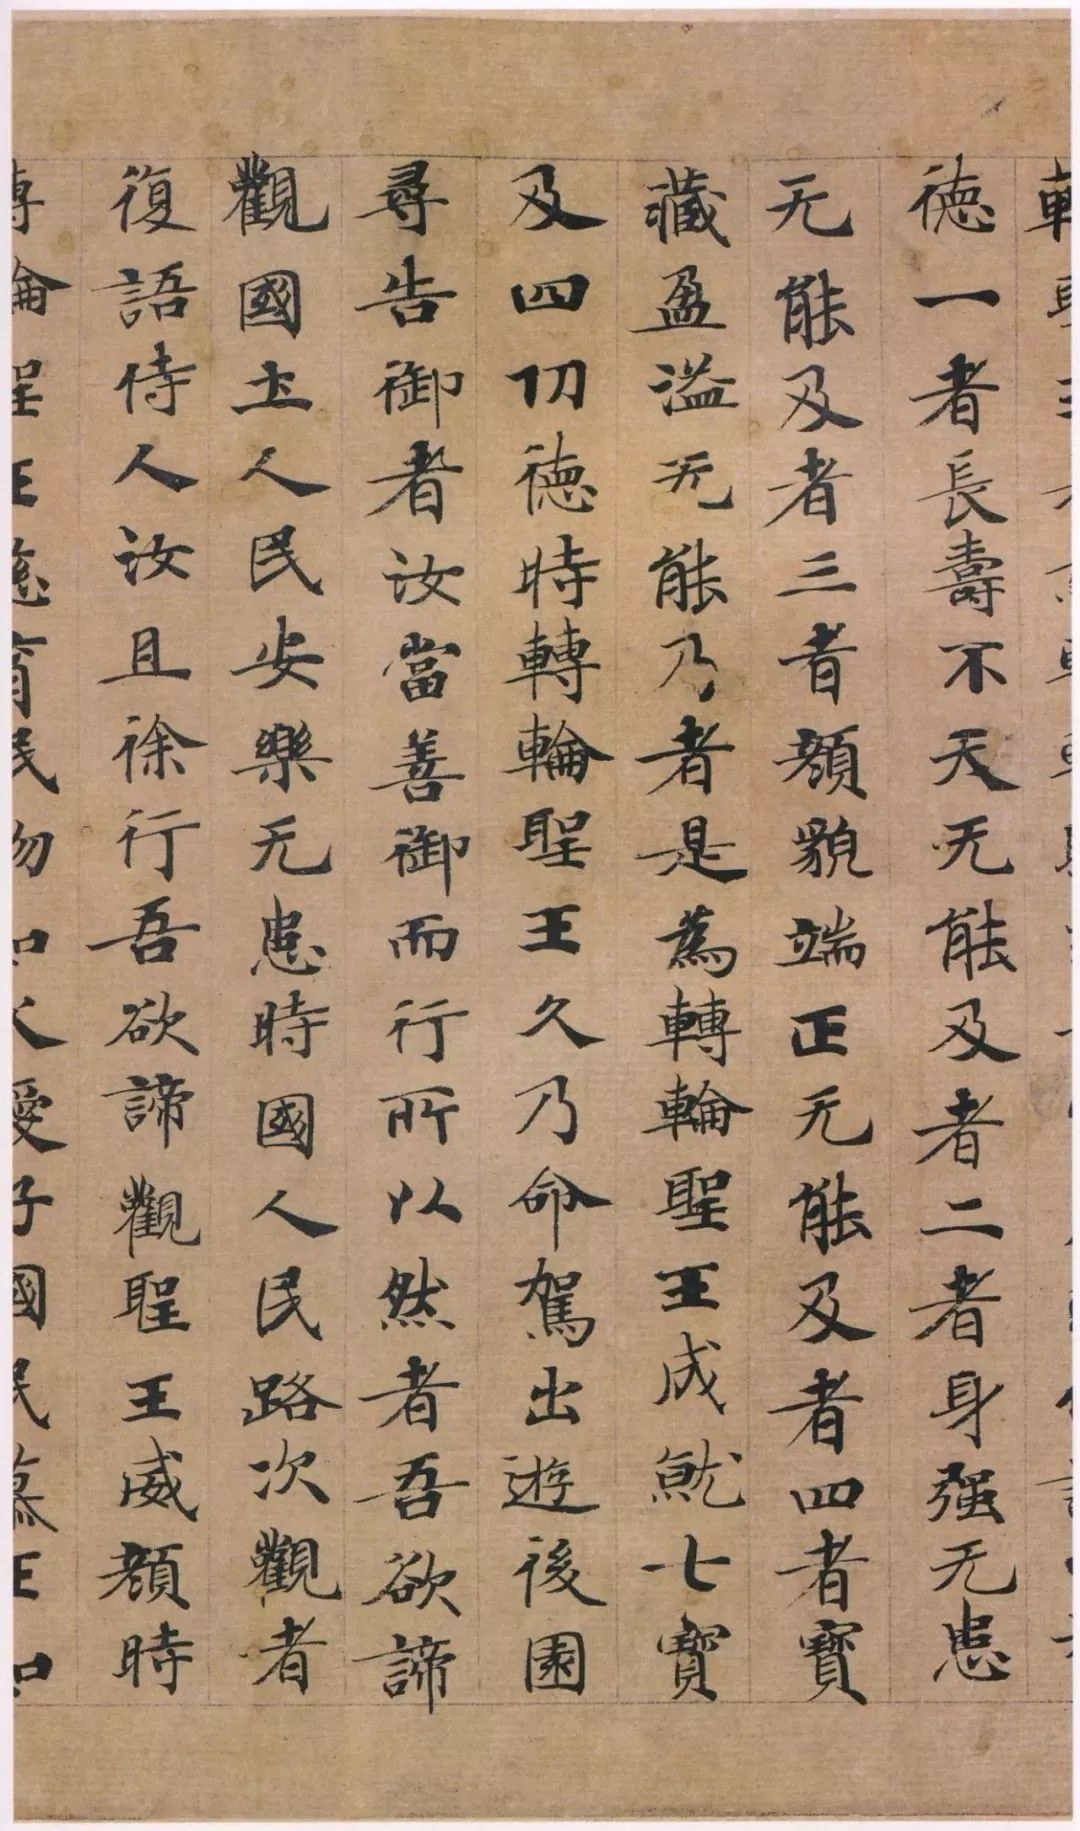 德一者長壽不夭无能及者二者身强无患
无能及者三者顔貌端正无能及者四者寶
藏盈溢无能乃者是為轉輪聖王成就七寶
及四功德時轉輪聖王久乃命駕出遊後園
尋告御者汝當善御而行所以然者吾欲諦
觀國土人民安樂无患時國人民路次觀者
復語侍人汝且徐行吾欲諦觀聖王威顔時
轉輪聖王慈育民物如父愛子國民慕王如